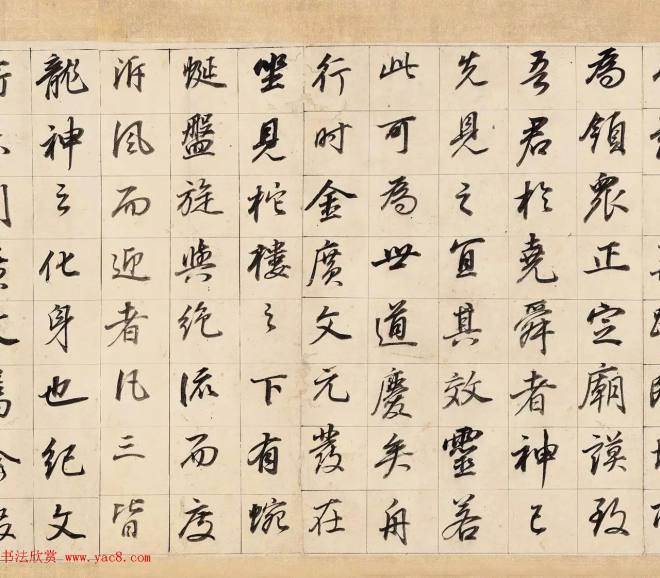 為領眾正定廟謨致
吾君於堯舜者神已
先見之宜其效靈若
此可為世道慶矣舟
行时金廣文元發在
坐見柁樓之下有蜿
蜒盤旋與絶流而度
泝風而迎者凡三皆
龍神之化身也紀文
书法欣赏 www.yac8.com